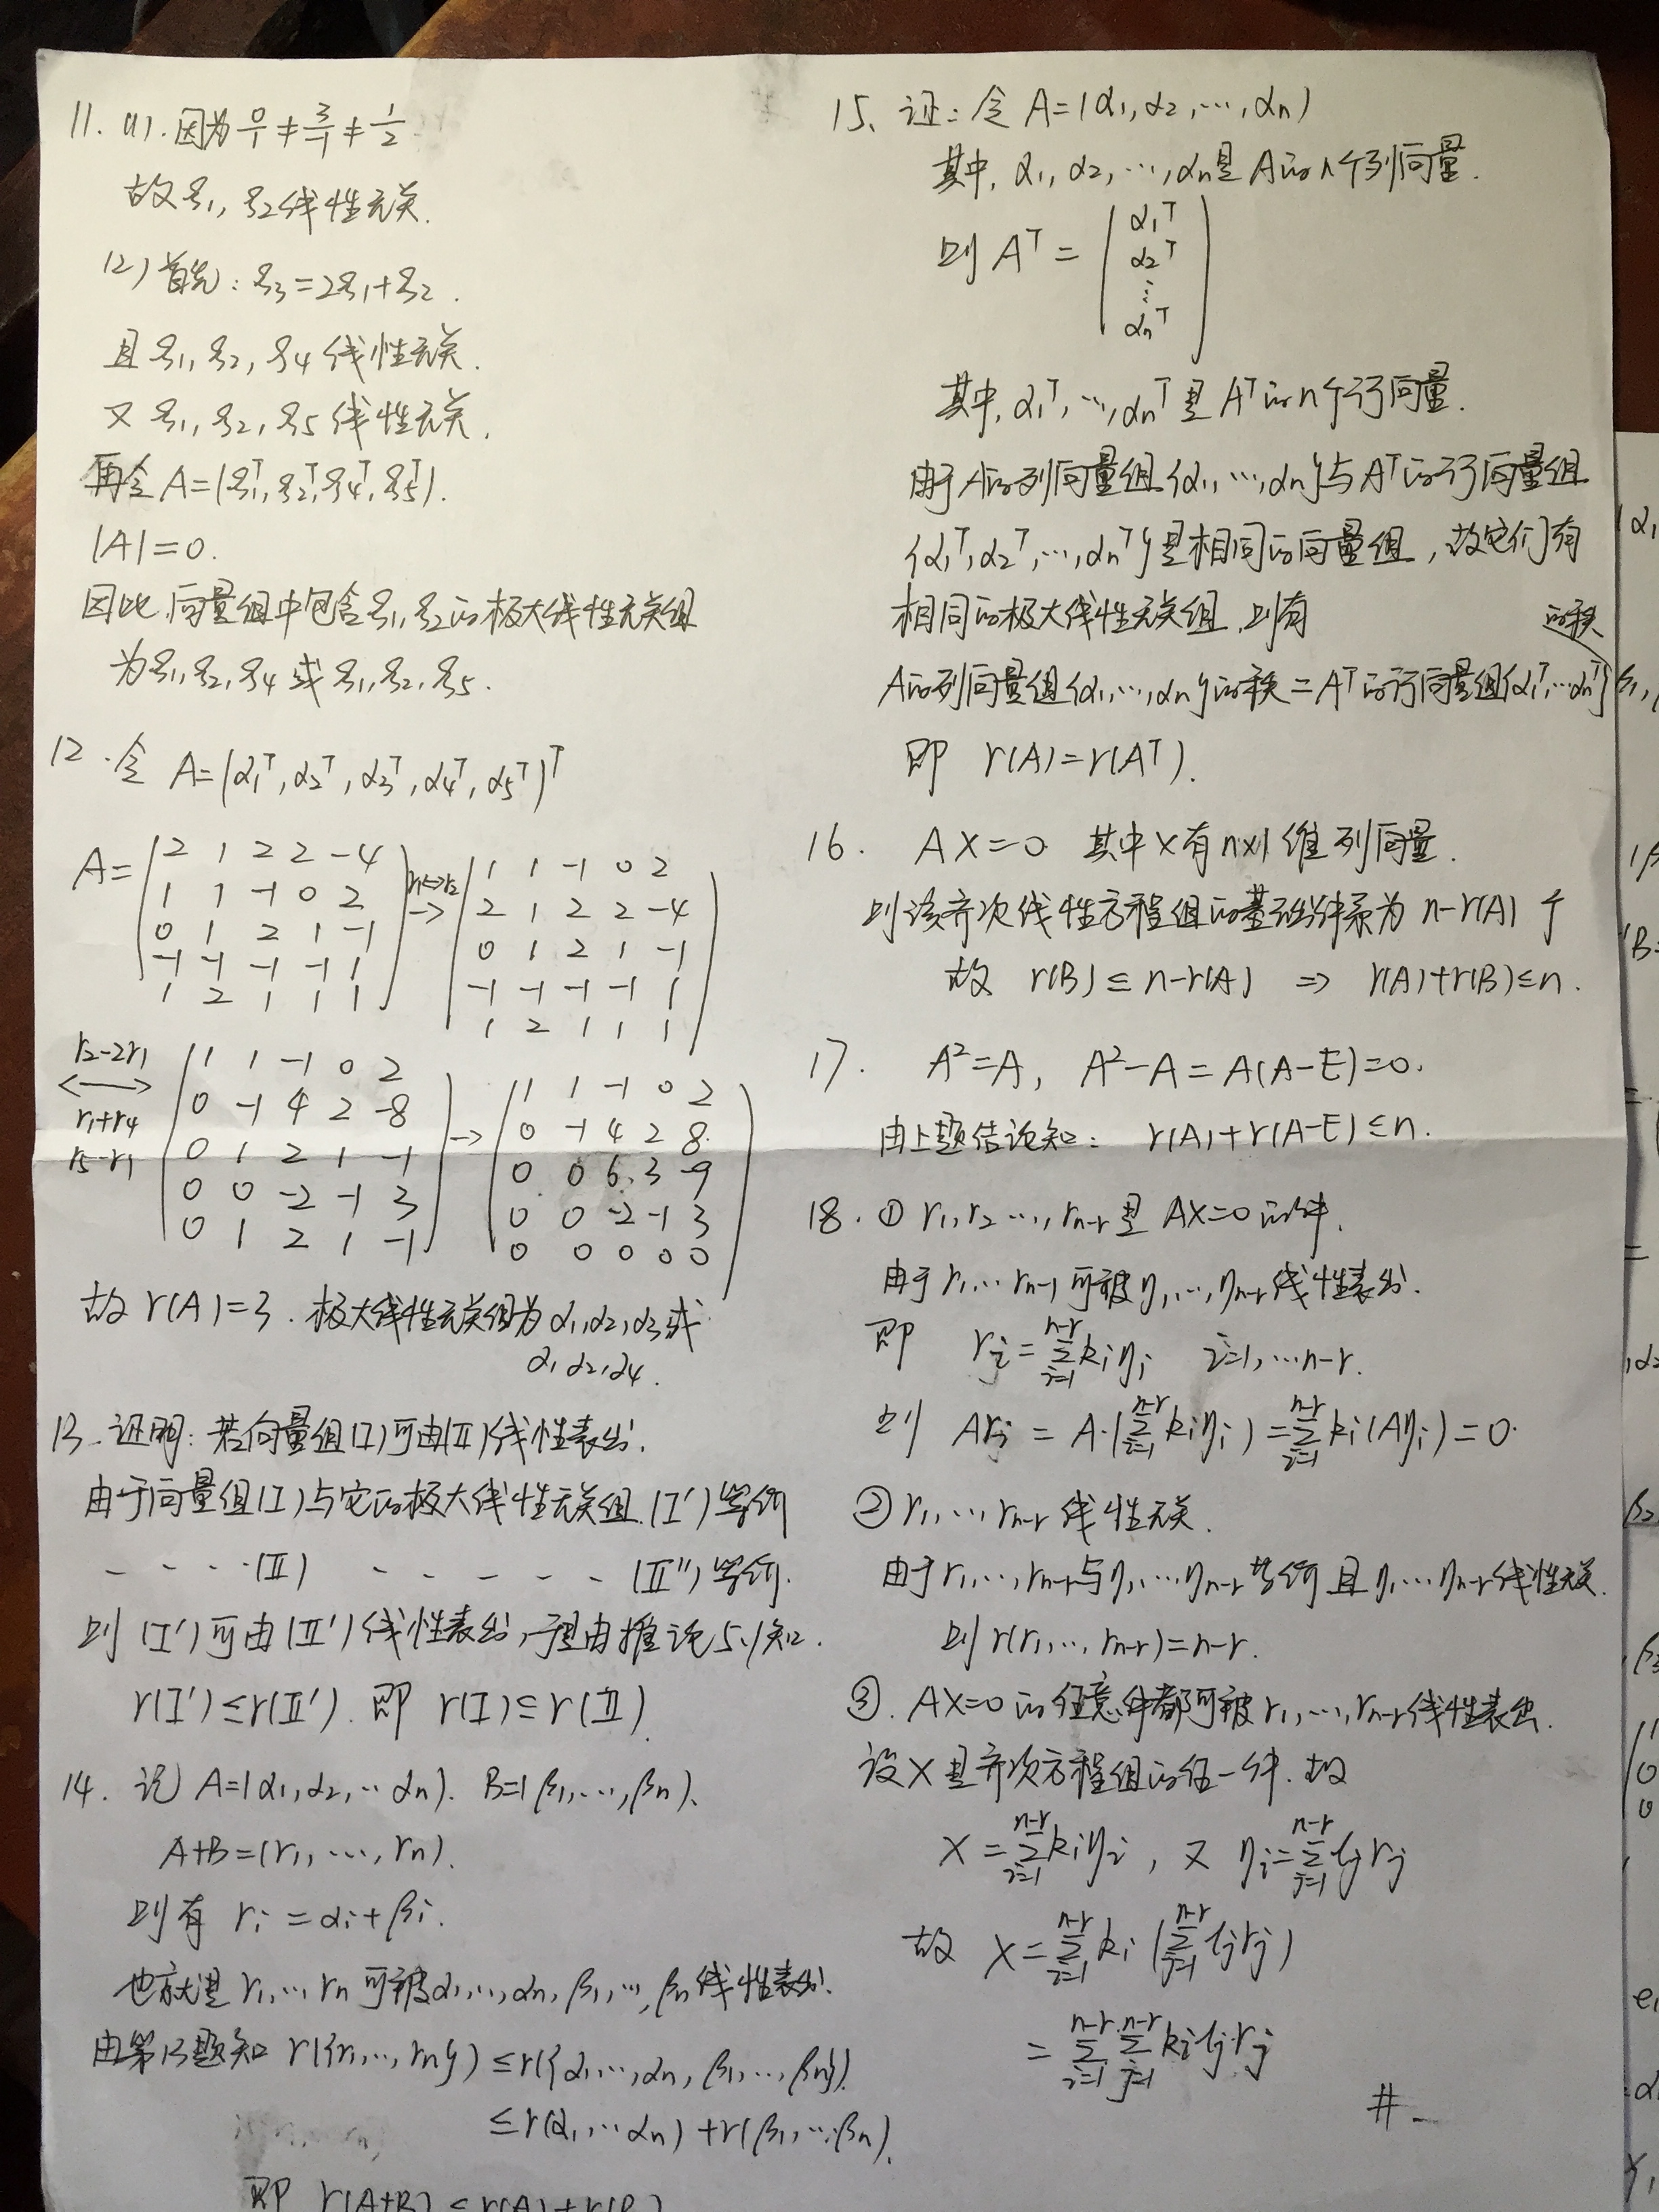 11. (1). 因为 0/1 ≠ 3/-1 ≠ 1/2.
故ξ1, ξ2线性无关.
(2) 首先: ξ3=2ξ1+ξ2.
且ξ1, ξ2, ξ4 线性无关.
又 ξ1, ξ2, ξ5 线性无关.
再令A=(ξ1ᵀ, ξ2ᵀ, ξ4ᵀ, ξ5ᵀ).
|A|=0.
因此, 向量组中包含ξ1, ξ2的极大线性无关组
为ξ1, ξ2, ξ4 或 ξ1, ξ2, ξ5.
12. 令 A=(α1ᵀ, α2ᵀ, α3ᵀ, α4ᵀ, α5ᵀ)ᵀ
A=
2 1 2 2 -4
1 1 -1 0 2
0 1 2 1 -1
-1 -1 -1 -1 1
1 2 1 1 1
r1↔r2
→
1 1 -1 0 2
2 1 2 2 -4
0 1 2 1 -1
-1 -1 -1 -1 1
1 2 1 1 1
r2-2r1
↔
r1+r4
r5-r1
1 1 -1 0 2
0 -1 4 2 -8
0 1 2 1 -1
0 0 -2 -1 3
0 1 2 1 -1
→
1 1 -1 0 2
0 -1 4 2 8
0 0 6 3 -9
0 0 -2 -1 3
0 0 0 0 0
故 r(A)=3. 极大线性无关组为α1,α2,α3或
α1,α2,α4.
13. 证明: 若向量组(I)可由(II)线性表出.
由于向量组(I)与它的极大线性无关组(I')等价
- - - - (II) - - - - - (II'')等价.
则 (I')可由(II')线性表出, 于是由推论5.1知.
r(I')≤r(II'). 即 r(I)≤r(II)
14. 记 A=(α1,α2,…αn). B=(β1,…,βn).
A+B=(r1,…,rn).
则有 ri=αi+βi.
也就是 r1,…rn 可被α1,…,αn, β1,…,βn线性表出.
由第13题知 r({r1,…,rn}) ≤r({α1,…,αn, β1,…,βn}).
≤r(α1,…αn)+r(β1,…,βn).
即 r(A+B)≤r(A)+r(B)
15、证: 令 A=(α1, α2, …, αn)
其中, α1, α2, …, αn是A的n个列向量.
则 Aᵀ =
α1ᵀ
α2ᵀ
⋮
αnᵀ
其中, α1ᵀ, …, αnᵀ 是 Aᵀ的n个行向量.
由于A的列向量组{α1, …, αn}与Aᵀ的行向量组
{α1ᵀ, α2ᵀ, …, αnᵀ}是相同的向量组, 故它们有
相同的极大线性无关组, 则有
的秩
A的列向量组{α1,…,αn}的秩=Aᵀ的行向量组{α1ᵀ,…αnᵀ}
即 r(A)=r(Aᵀ).
16. AX=0 其中X有n×1维列向量.
则该齐次线性方程组的基础解系为 n-r(A) 个
故 r(B)≤n-r(A) ⇒ r(A)+r(B)≤n.
17. A²=A, A²-A=A(A-E)=0.
由上题结论知: r(A)+r(A-E)≤n.
18. ① r1, r2 …, rn-r是 AX=0的解.
由于 r1,…rn-1 可被η1,…,ηn-r线性表出.
即 ri=∑(i=1, n-r) kiηi i=1,…n-r.
则 Arj = A·(∑(i=1, n-r) kiηi)=∑(i=1, n-r) ki(Aηi)=0.
② r1, …, rn-r 线性无关.
由于r1,…,rn-r与η1,…ηn-r等价且η1,…ηn-r线性无关.
则 r(r1,…, rn-r)=n-r.
③. AX=0的任意解都可被r1,…,rn-r线性表出.
设X是齐次方程组的任一解. 故
X=∑(i=1, n-r) kiηi, 又 ηi=∑(j=1, n-r) lj rj
故 X=∑(i=1, n-r) ki (∑(j=1, n-r) lj rj)
=∑(i=1, n-r) ∑(j=1, n-r) ki lj rj
#